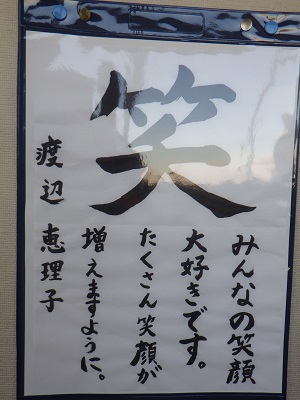 笑
みんなの笑顔
大好きです。
たくさん笑顔が
増えますように。
渡辺 恵理子